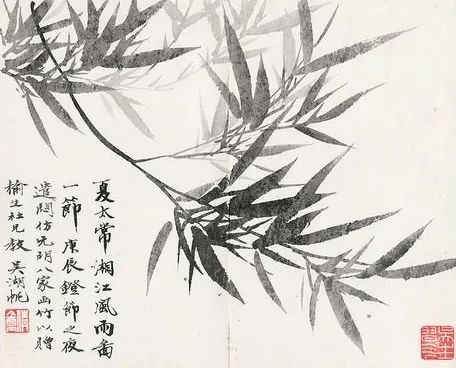 夏太常湘江風雨啚
一節庚辰鐙節之夜
遣悶仿元明八家畫竹以贈
榆生社兄教吳湖帆